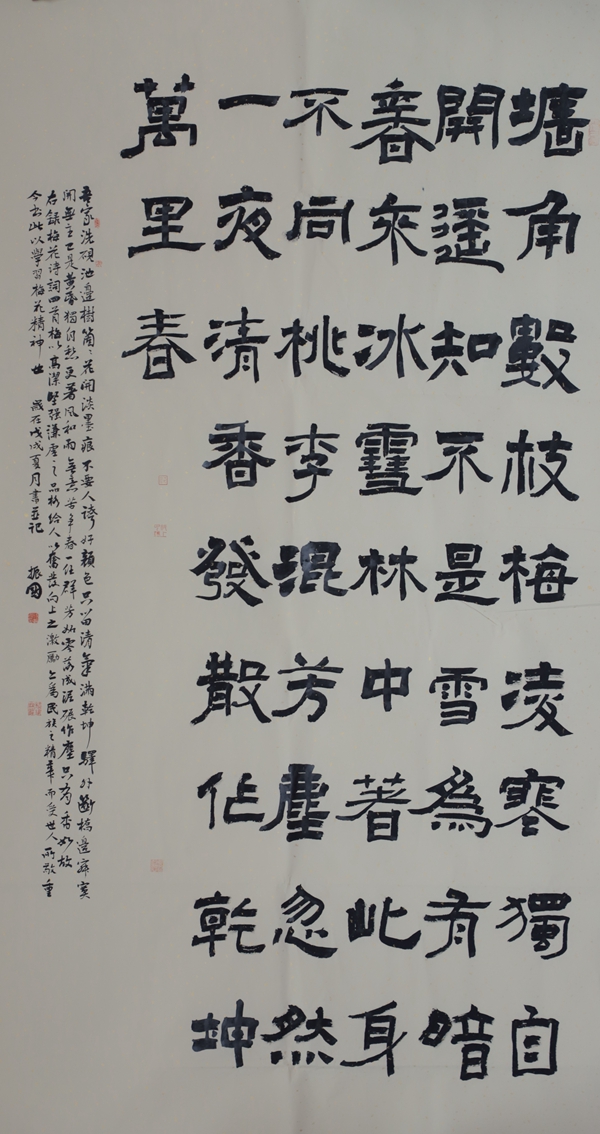 墻角數枝梅凌寒獨自
開遥知不是雪為有暗
香來冰雪林中著此身
不同桃李混芳塵忽然
一夜清香發散作乾坤
萬里春
吾家洗硯池邊樹箇々花開淡墨痕不要人誇好顏色只留清氣滿乾坤驛外斷橋邊寂寞
開無主已是黃昏獨自愁更著風和雨無意苦爭春一任群芳妒零落成泥碾作塵只有香如故
右錄梅花詩詞四首梅以高潔堅強謙虛之品格給人以奮發向上之激勵為民族之精華而受世人所敬重
今書此以學習梅花精神也 歲在戊戌夏月書並記 振國